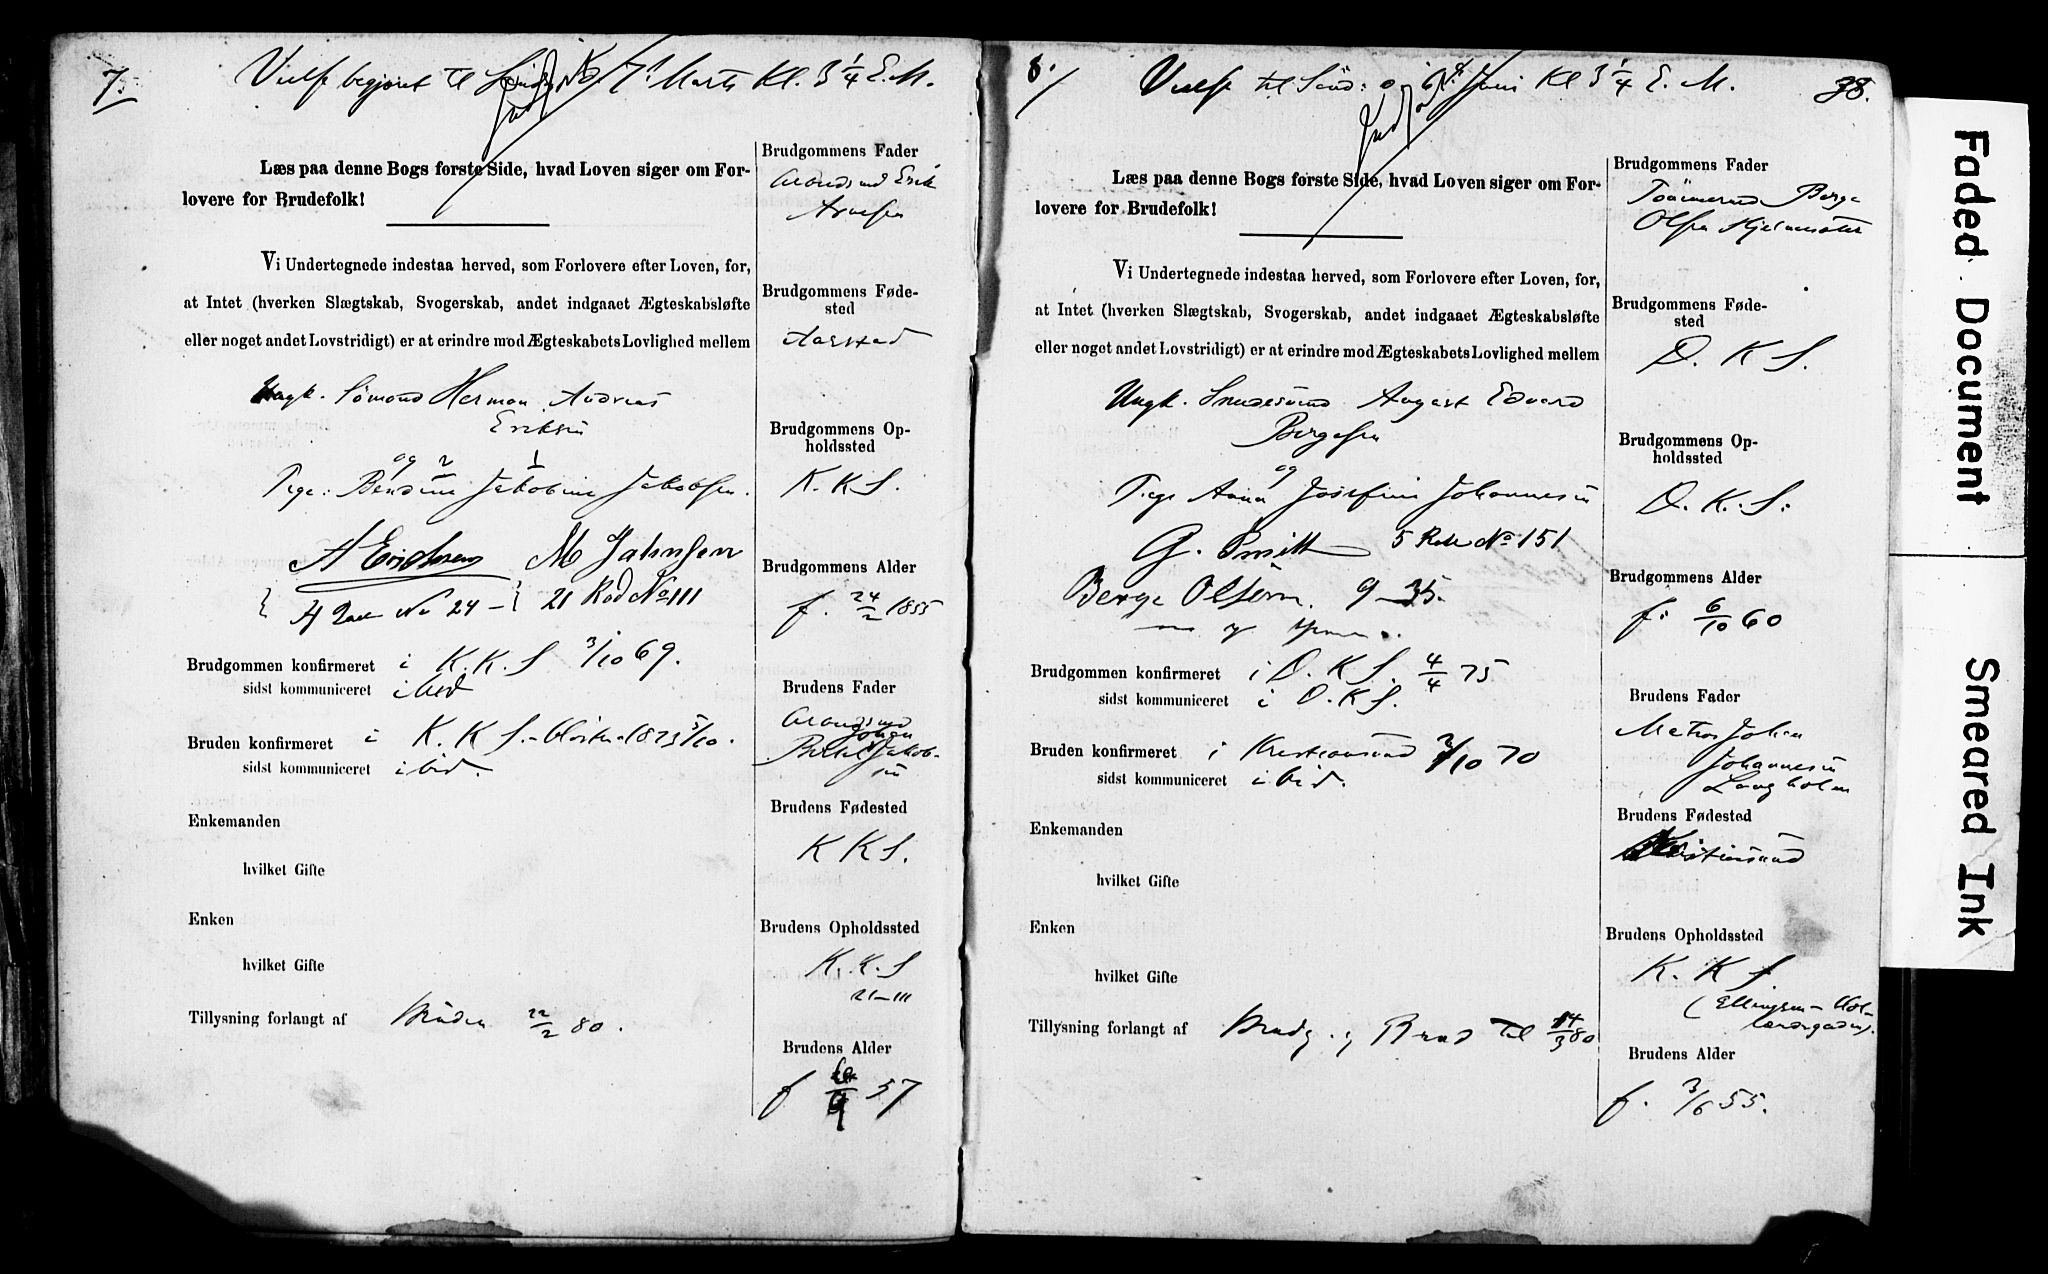 7.
Vielse begjæret til Söndag 7' Marts Kl. 3 1/4 E. M.
Læs paa denne Bogs første Side, hvad Loven siger om For-
lovere for Brudefolk!
Vi Undertegnede indestaa herved, som Forlovere efter Loven, for,
at Intet (hverken Slægtskab, Svogerskab, andet indgaaet Ægteskabsløfte
eller noget andet Lovstridigt) er at erindre mod Ægteskabets Lovlighed mellem
Ungk. Sømand Herman Andreas
Eriksen
og 2 1
Pige: Jakobine Jakobsen.
A Erichsen M Jahnsen
No 24 - 21 Rod No 111
Brudgommen konfirmeret i K. K. S 3/10 69.
sidst kommuniceret ibid
Bruden konfirmeret i K. K S. 1873 5/10.
sidst kommuniceret ibid.
Enkemanden
hvilket Gifte
Enken
hvilket Gifte
Tillysning forlangt af Bruden 22/2 80.
Brudgommens Fader
Arbeidsmd Erik
BrudgommensFøde-
sted
Aarstad
Brudgommens Op-
holdssted
K. K S.
Brudgommens Alder
f. 24/2 1855
Brudens Fader
Arbeidsmd
Johan
Jakob-
sen
Brudens Fødested
K K S.
Brudens Opholdssted
K. K. S
21-111
Brudens Alder
f 57
8.
Vielse til Sönd: 6te Juni Kl 3 1/4 E. M.
38.
Læs paa denne Bogs første Side, hvad Loven siger om For-
lovere for Brudefolk!
Vi Undertegnede indestaa herved, som Forlovere efter Loven, for,
at Intet (hverken Slægtskab, Svogerskab, andet indgaaet Ægteskabsløfte
eller noget andet Lovstridigt) er at erindre mod Ægteskabets Lovlighed mellem
Ungk. Smedesvend August Edvard
Bergesen
og
Pige Anna Josefine Johannesen
G. Smitt 5 Rode No 151
Berge Olsen. 9 - 35.
Brudgommen konfirmeret i D. K S. 4/4 75
sidst kommuniceret i D. K S.
Bruden konfirmeret i Kristiansand /10 70
sidst kommuniceret ibid.
Enkemanden
hvilket Gifte
Enken
hvilket Gifte
Tillysning forlangt af Brudg. og Brud til 14/3 80
Brudgommens Fader
Tömmermd Berge
Olsen
Brudgommens Føde-
sted
D. K S.
Brudgommens Op-
holdssted
D. K. S.
Brudgommens Alder
f. 6/10 60
Brudens Fader
Matros Johan
Johannesen
Langholm
Brudens Fødested
Kristiansand
Brudens Opholdssted
K. K S
(Ellingsen - Hol-
lændergaden).
Brudens Alder
f. 3/6 55.
Faded Document
Smeared Ink